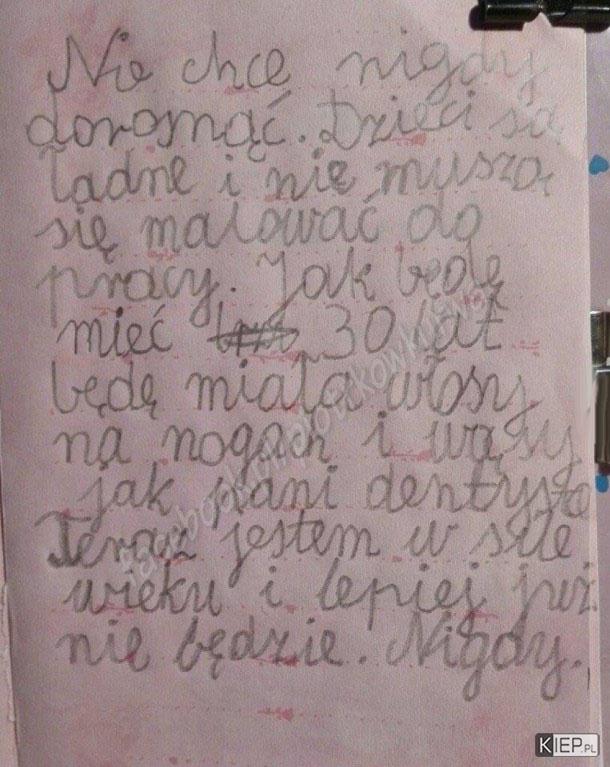 Nie chcę nigdy
dorosnąć. Dzieci są
ładne i nie muszą
się malować do
pracy. Jak będę
mieć 30 lat
będę miała włosy
na nogach i wąsy
jak pani dentysta
Teraz jestem w sile
wieku i lepiej już
nie będzie. Nigdy.
KIEP.PL